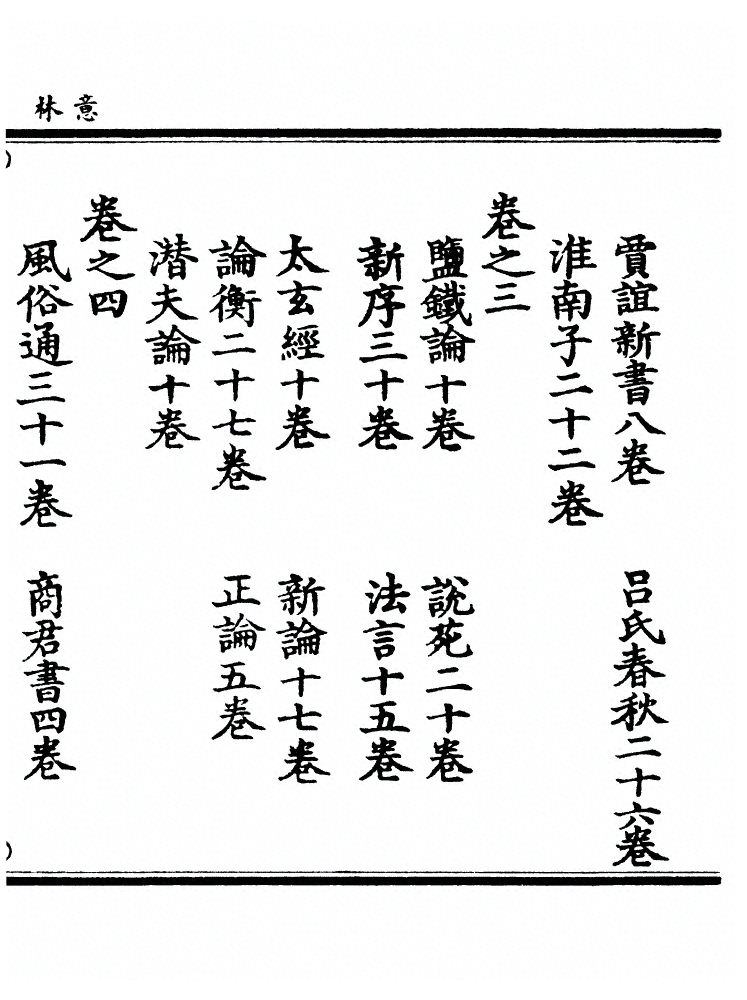 意林
賈誼新書八卷 吕氏春秋二十六卷
淮南子二十二卷
卷之三
鹽鐵論十卷 說苑二十卷
新序三十卷 法言十五卷
太玄經十卷 新論十七卷
論衡二十七卷 正論五卷
潜夫論十卷
卷之四
風俗通三十一卷 商君書四卷